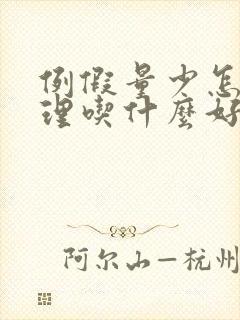 例假量少怎
理喫什麼好
阿尔山—杭州